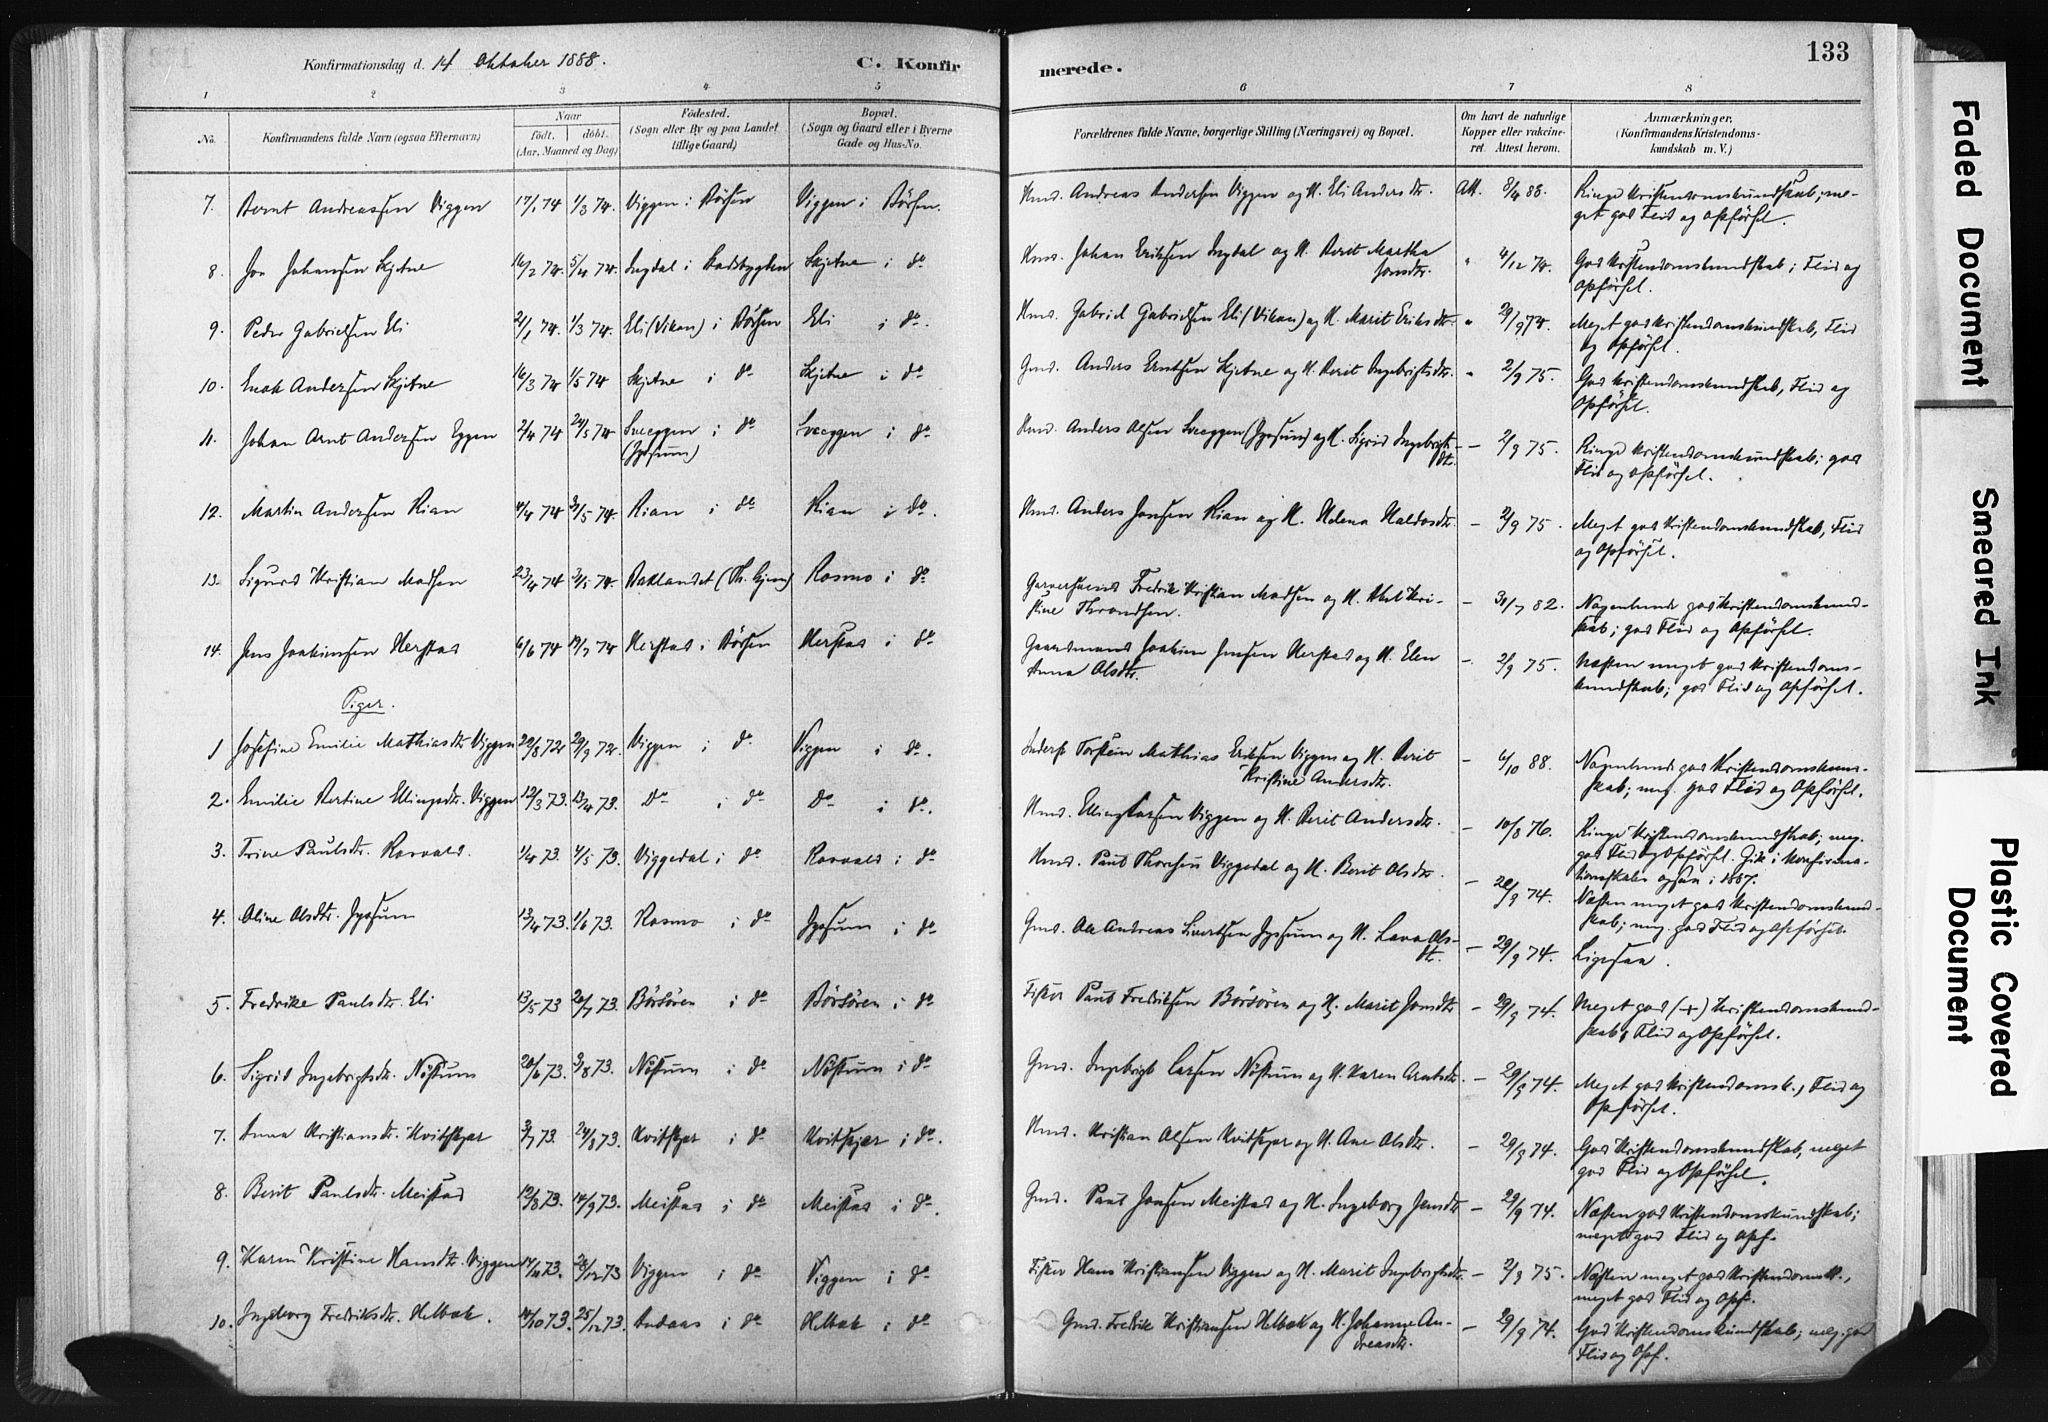 Konfirmationsdag d. 14 Oktober 1888. C. Konfirmerede. 133
1 2 3 4 5 6 7 8
No. Konfirmandens fulde Navn (ogsaa Efternavn) Naar født, døbt. (Aar, Maaned og Dag) Fødested. (Sogn eller By og paa Landet tillige Gaard) Bopæl. (Sogn og Gaard eller i Byerne Gade og Hus-No. Forældrenes fulde Navne, borgerlige Stilling (Næringsvei) og Bopæl. Om havt de naturlige Kopper eller vaccineret. Attest herom. Anmærkninger. (Konfirmandens Kristendomskundskab m. V.)
7. Bernt Andreassen Viggen 17/1 74 1/3 74. Viggen i Börsen Viggen i Börsen. Kmd. Andreas Andersen Viggen og H. Eli Andersdtr. Att. 8/4 88. Ringe Kristendomskundskab; meget god Flid og Opförsel.
8. Jon Johansen Skjetne 16/2 74. 5/4 74. Ingdal i Stadsbygden Skjetne i do Kmd. Johan Eriksen Ingdal og H. Berit Martha Jonsdtr. " 4/12 74. God Kristendomskundskab; Flid og Opförsel.
9. Peder Gabrielsen Eli 21/1 74. 1/3 74. Eli (Vikan) i Börsen Eli i do. Kmd. Gabriel Gabrielsen Eli (Vikan) og H. Marit Eriksdtr. " 29/9 74. Meget god Kristendomskundskab, Flid og Opförsel.
10. Enok Andersen Skjetne 16/3 74 1/5 74 Skjetne i do Skjetne i do Gmd. Anders Erntsen Skjetne og H. Berit Ingebrigtsdtr. " 2/9 75. God Kristendomskundskab, Flid og Opförsel.
11. Johan Arnt Andersen Eggen 2/4 74 24/5 74 Sveeggen i do (Jyssum) Sveeggen i do Kmd. Anders Olsen Sveeggen (Jyssum) og H. Sigrid Ingebrigtsdtr. - 2/9 75. Ringe Kristendomskundskab; god Flid og Opförsel.
12. Martin Andersen Rian 4/4 74 3/5 74. Rian i do Rian i do. Kmd. Anders Jonsen Rian og H. Helena Haldosdtr. - 2/9 75. Meget god Kristendomskundskab, Flid og Opförsel.
13. Sigurd Kristian Madsen 23/4 74 3/5 74. Baklandet (Th.hjem) Rosmo i do Garversvend Fredrik Kristian Madsen og H. Abel Kristine Throndsen. - 31/7 82. Nogenlunde god Kristendomskundskab; god Flid og Opförsel.
14. Jens Joakimsen Herstad 6/6 74 19/7 74 Herstad i Börsen Herstad i do Gaardmand Joakim Jensen Herstad og H. Elen Anna Olsdtr. - 2/9 75. Næsten meget god Kristendomskundskab; god Flid og Opförsel.
Piger.
1 Josefine Emilie Mathiasdtr. Viggen 22/8 72 29/9 72. Viggen i do Viggen i do. Inderst Torstein Mathias Eriksen Viggen og H. Berit Kristine Andersdtr. - 6/10 88. Nogenlunde god Kristendomskundskab; meg. god Flid og Opförsel.
2. Emilie Bertine Ellingsdtr. Viggen 12/3 73. 13/4 73. Do i do Do i do. Kmd. Elling Larsen Viggen og H. Berit Andersdtr. - 10/8 76. Ringe Kristendomskundskab; meg. god Flid og Opförsel. Gik i Konfirmationsskolen ogsaa i 1887.
3. Trine Paulsdtr. Rosvald. 1/4 73. 4/5 73. Viggedal i do Rosvald i do Kmd. Paul Thoresen Viggedal og H. Berit Olsdtr. - 20/9 74. Næsten meget god Kristendomskundskab; meg. god Flid og Opförsel.
4. Oline Olsdtr. Jyssum 13/4 73. 1/6 73. Rosmo i do Jyssum i do Gmd. Ole Andreas Sivertsen Jyssum og H. Lava Olsdtr. - 29/9 74. Ligesaa.
5. Fredrike Paulsdtr. Eli 13/5 73 20/7 73. Börsören i do Börsören i do Fisker Paul Fredriksen Börsören og H. Marit Jonsdtr - 29/9 74. Meget god (÷) Kristendomskundskab, Flid og Opförsel.
6. Sigrid Ingebrigtsdtr. Nöstum 20/6 73. 3/8 73. Nöstum i do Nöstum i do Gmd. Ingebrigt Larsen Nöstum og H. Karen Arntsdtr. - 29/9 74. Meget god Kristendomsk., Flid og Opförsel.
7. Anna Kristiansdtr. Kvitskjær 3/7 73. 24/8 73. Kvitskjær i do Kvitskjær i do. Kmd. Kristian Olsen Kvitskjær og H. Ane Olsdtr. - 29/9 74. God Kristendomskundskab, meget god Flid og Opförsel.
8. Berit Paulsdtr. Meistad 12/8 73. 14/9 73. Meistad i do Meistad i do. Gmd. Paul Jonsen Meistad og H. Ingeborg Jonsdtr - 29/9 74. Næsten god Kristendomskundskab; meget god Flid og Opf.
9. Karen Kristine Hansdtr. Viggen 14/11 73. 26/12 73 Viggen i do Viggen i do Fisker Hans Kristiansen Viggen og H. Marit Ingebrigtsdtr. - 2/9 75. Næsten meget god Kristendomsk., meget god Flid og Opf.
10. Ingeborg Fredriksdtr. Helbæk. 14/10 73. 25/12 73. Andaas i do Helbæk i do Gmd. Fredrik Kristiansen Helbæk og H. Johanne Andreasdtr. - 29/9 74. God Kristendomskundskab; meg. god Flid og Opf.
Faded Document
Smeared Ink
Plastic Covered Document